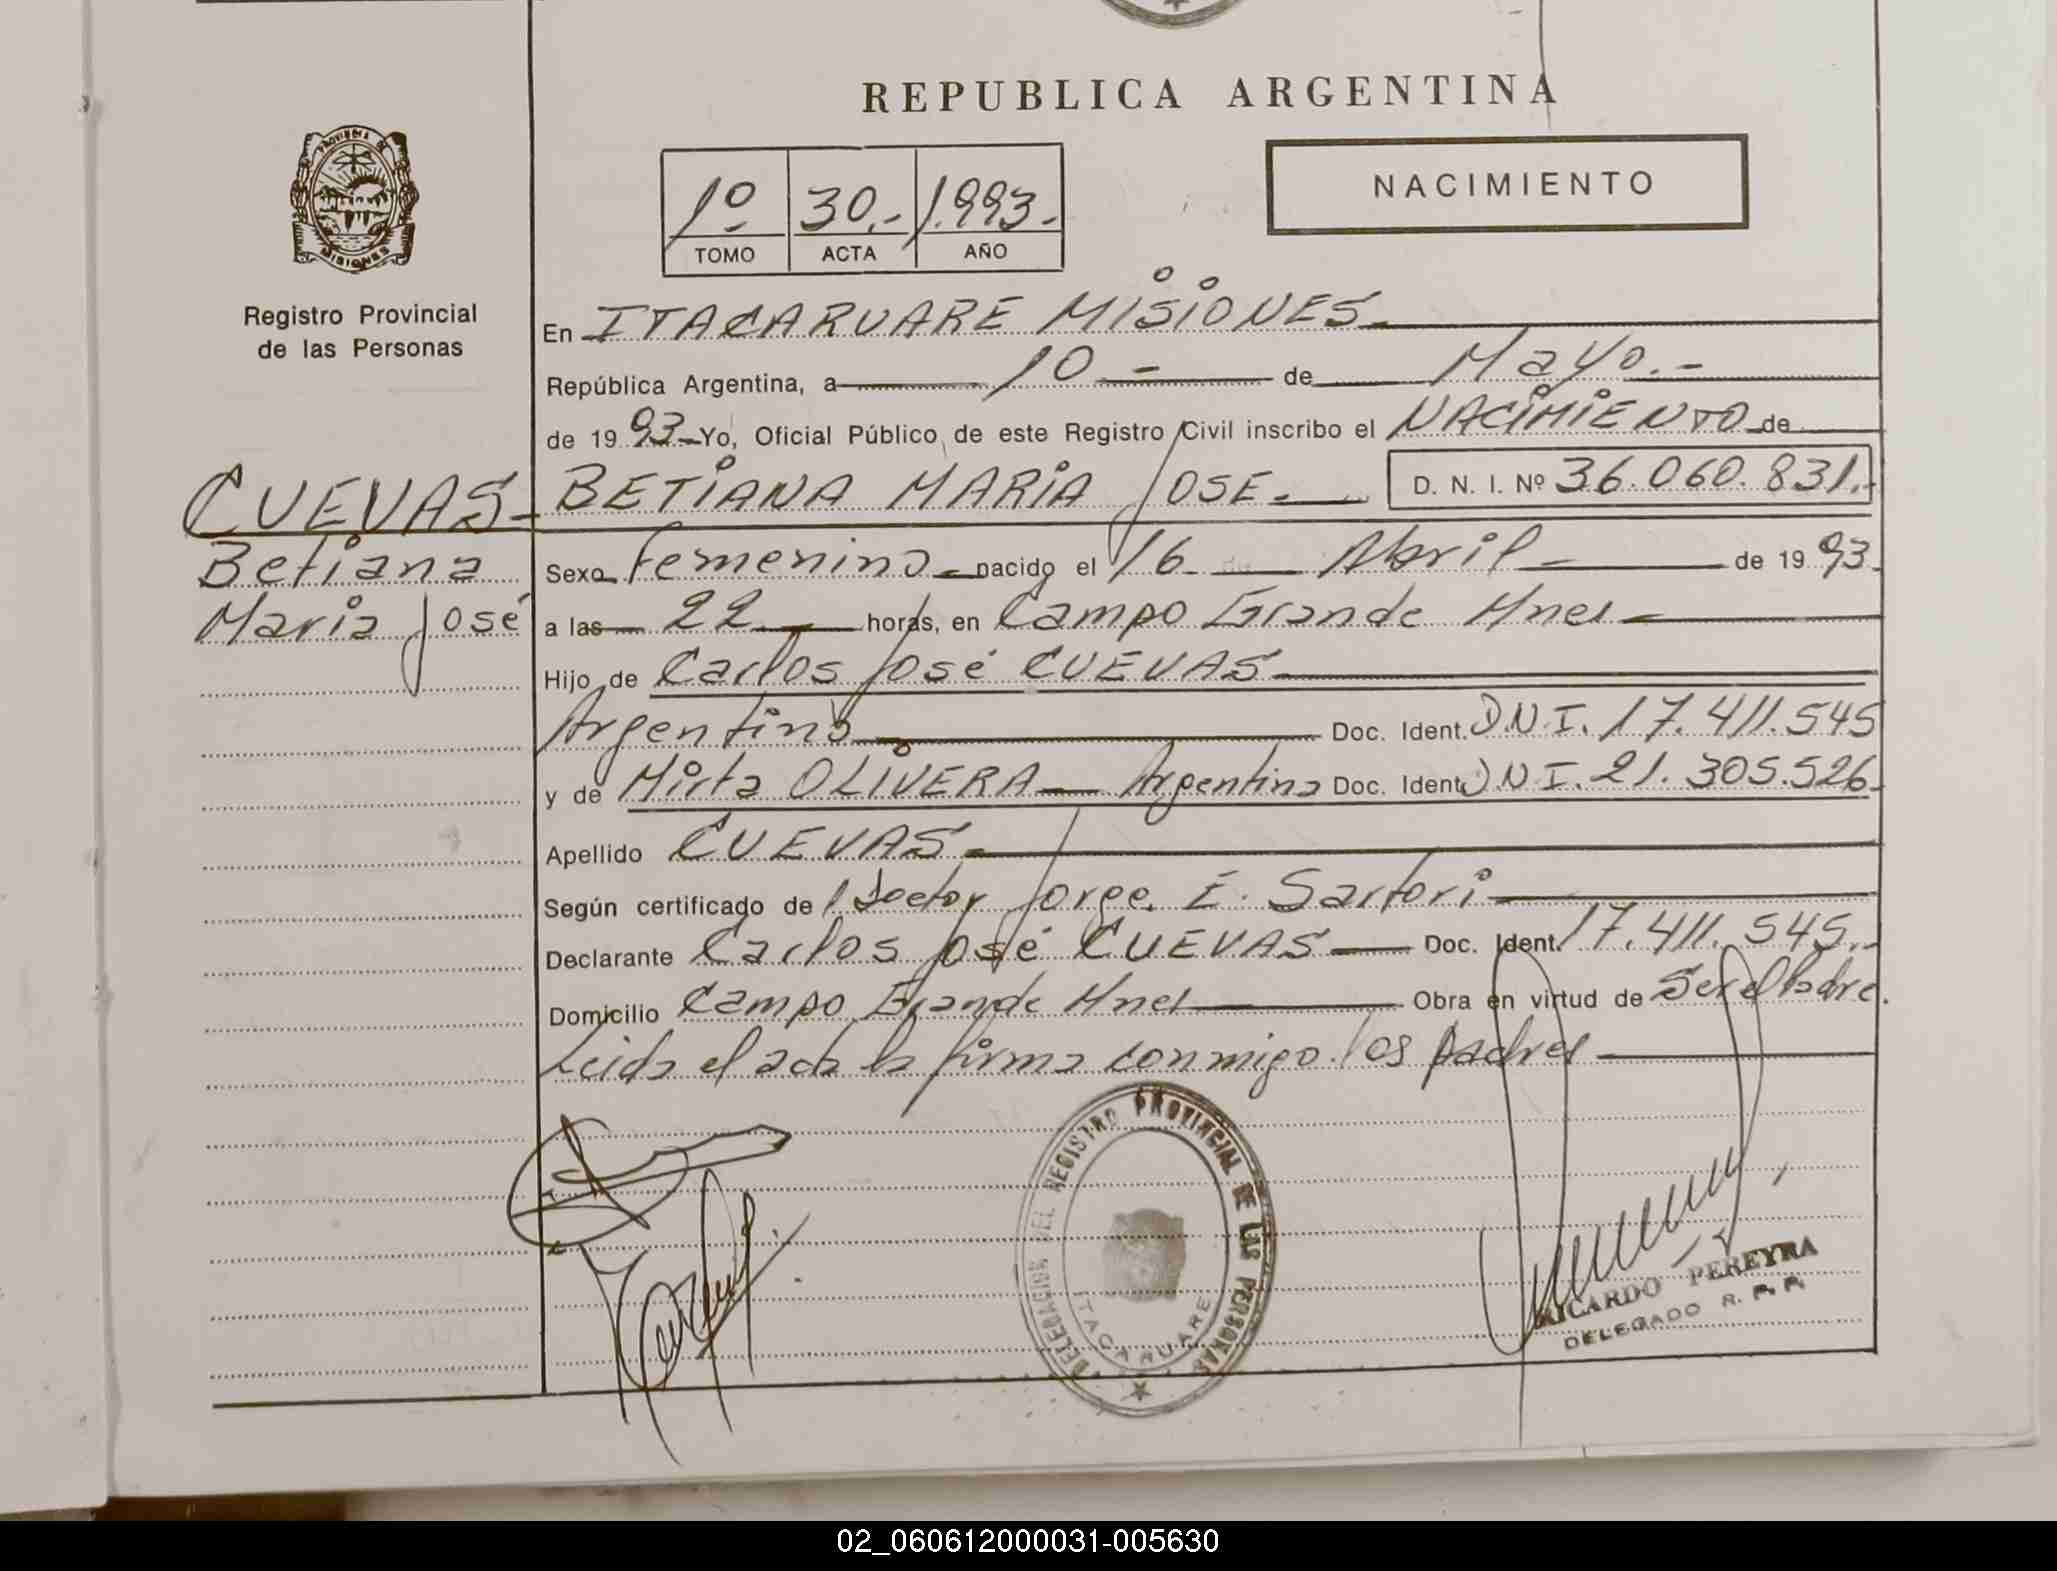 REPUBLICA ARGENTINA
PROVINCIA DE
MISIONES
Registro Provincial
de las Personas
1º 30.- 1.993.-
TOMO ACTA AÑO
NACIMIENTO
En ITACARUARE MISIONES.
República Argentina, a 10 - de Mayo.-
de 19 93 Yo, Oficial Público de este Registro Civil inscribo el NACIMIENTO de
CUEVAS
Betiana
Maria José
BETIANA MARIA JOSE. D. N. I. Nº 36.060.831.-
Sexo femenino nacido el 16 de Abril de 19 93.
a las 22 horas, en Campo Grande Mnes
Hijo de Carlos José CUEVAS
Argentino Doc. Ident. D.N.I. 17.411.545
y de Mirta OLIVERA Argentina Doc. Ident. D.N.I. 21.305.526
Apellido CUEVAS
Según certificado de l Doctor Jorge. E. Sartori
Declarante Carlos José CUEVAS Doc. Ident. 17.411.545.-
Domicilio Campo Grande Mnes Obra en virtud de Ser el Padre.
Leida el acta la firma conmigo los padres
DELEGACION DEL REGISTRO PROVINCIAL DE LAS PERSONAS
ITACARUARE
RICARDO PEREYRA
DELEGADO R. P. P.
02_060612000031-005630